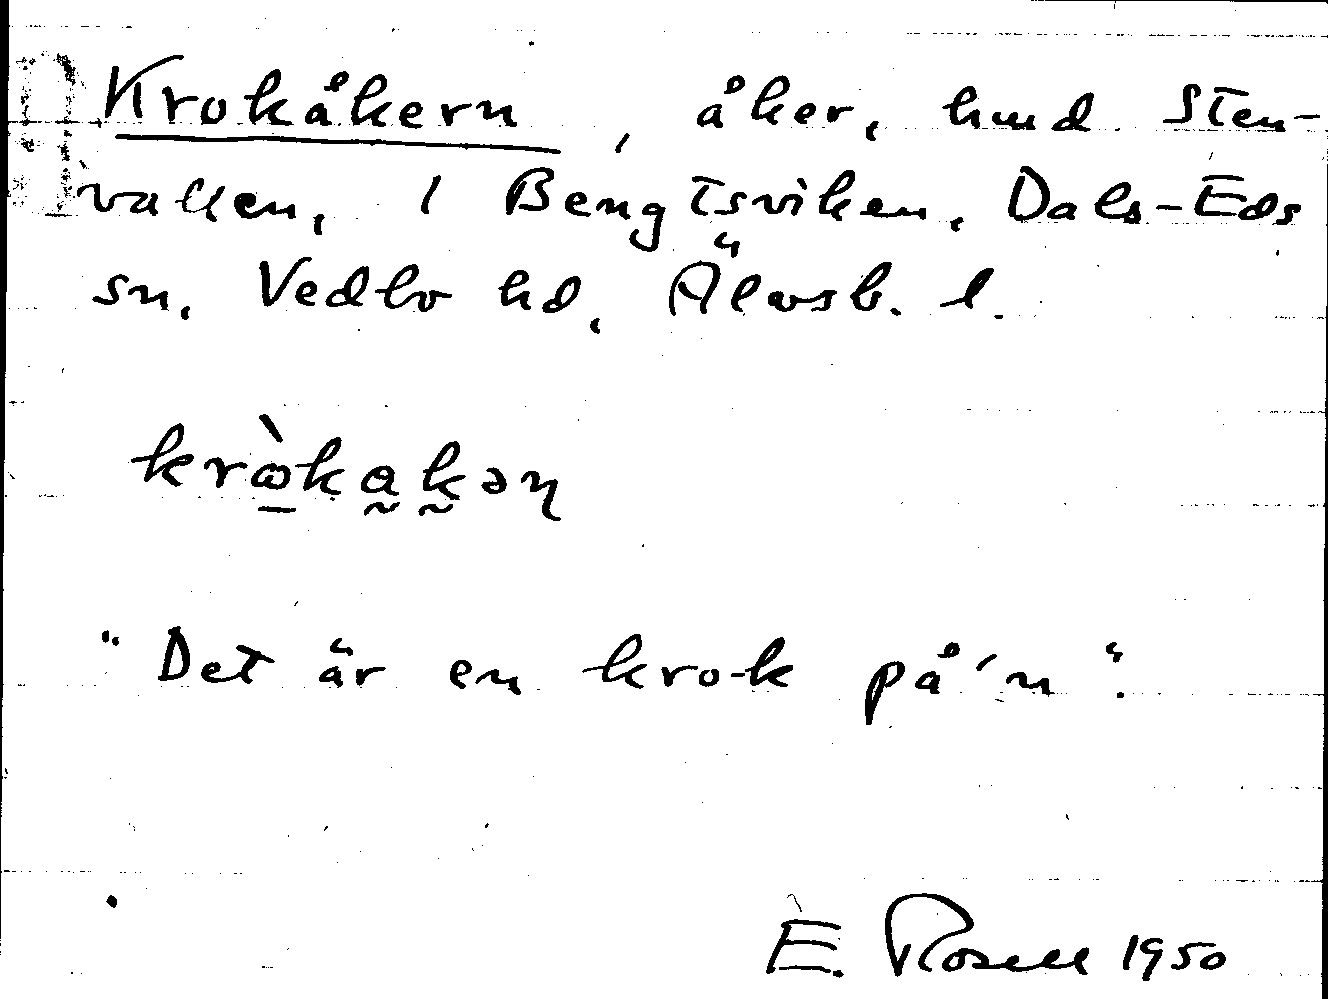 Krokåkern, åker, hmd Sten-
vallen, 1 Bengtsviken, Dals-Eds
sn, Vedbo hd, Älvsb. l.
krɷ̀kakəɳ
"Det är en krok på'n".
E. Rosell 1950